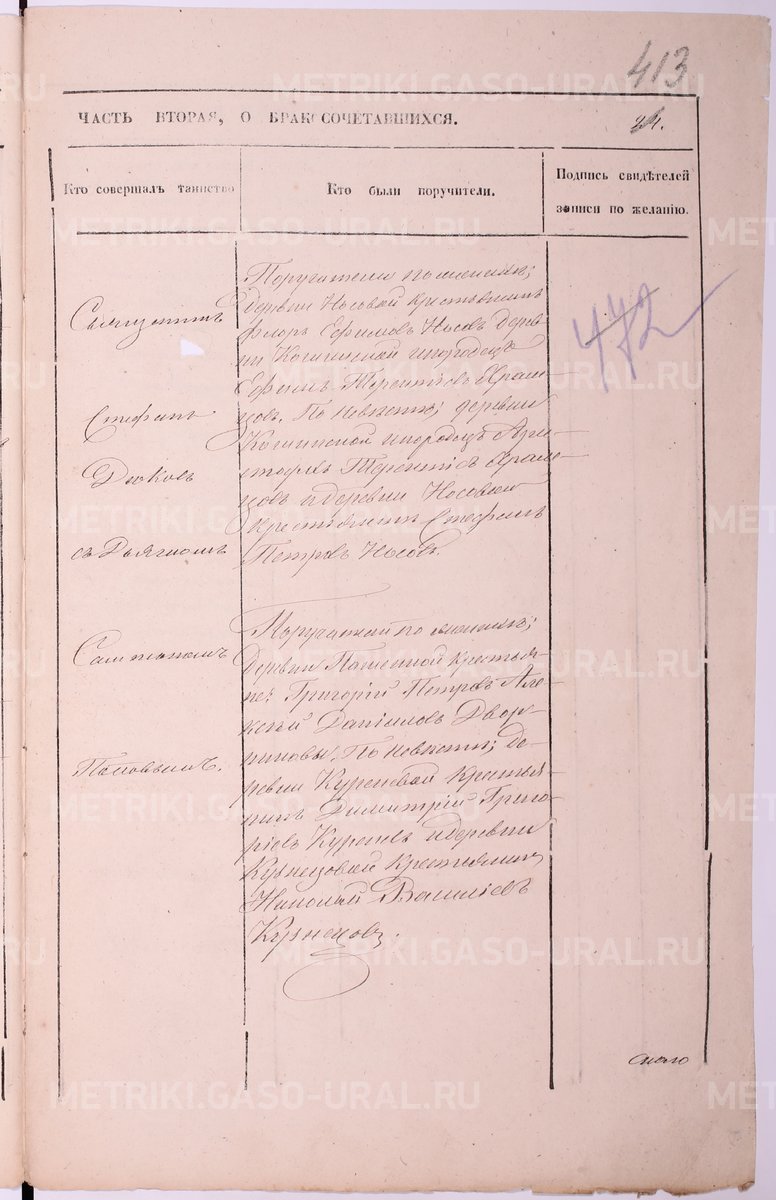 413
ЧАСТЬ ВТОРАЯ, О БРАКОСОЧЕТАВШИХСЯ.
Кто совершалъ таинство
Кто были поручители.
Подпись свидѣтелей записи по желанію.
Священникъ
Стефанъ
Дюковъ
съ Дьячкомъ
Поповымъ.
Поручители по женихѣ;
деревни Носовой крестьянинъ
Флоръ Ефимовъ Носовъ дерев-
ни инородецъ
Ефимъ Терентіевъ Храм-
цовъ. По невѣстѣ; деревни
инородецъ
Терентіевъ Храм-
цовъ и деревни Носовой
крестьянинъ Стефанъ
Петровъ Носовъ.
472
Поручители по женихѣ;
Деревни крестья-
не: Григорій Петровъ Але-
ксѣй Даніиловъ Двор-
никовы. По невѣстѣ; де-
ревни Куреневой крестья-
нинъ Димитрій Григо-
ріевъ и деревни
Кузнецовой крестьянинъ
Николай Василіевъ
Кузнецовъ.
METRIKI.GASO-URAL.RU